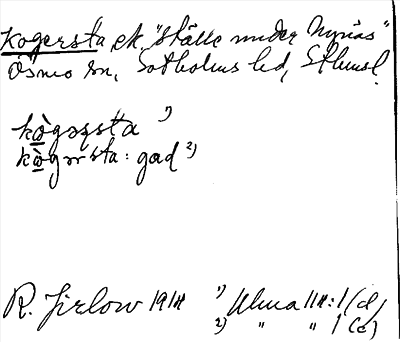 Kogersta ek. "ställe under Nynäs"
Ösmo sn, Sotholms hd, Sthmsl.
kògəṣta 1)
kògərsta: gad 2)
R. Jirlow 1918 1) Ulma 111:1 (d)
2) " " 1 (c)